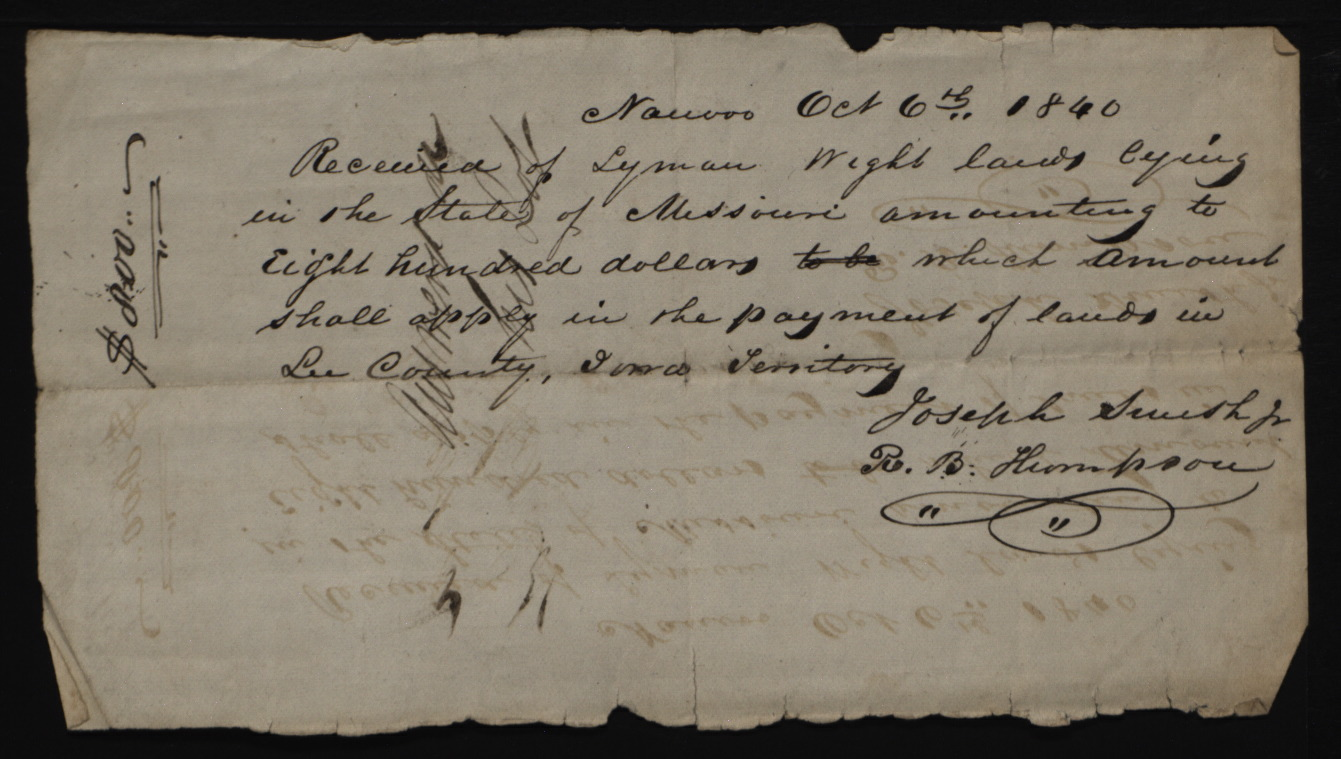 Nauvoo Oct 6th. 1840
Received of Lyman Wight lands lying
in the State of Missouri amounting to
Eight hundred dollars to be which amount
shall apply in the payment of lands in
Lee County, Iowa Territory
Joseph Smith Jr
R. B. Thompson
$800..